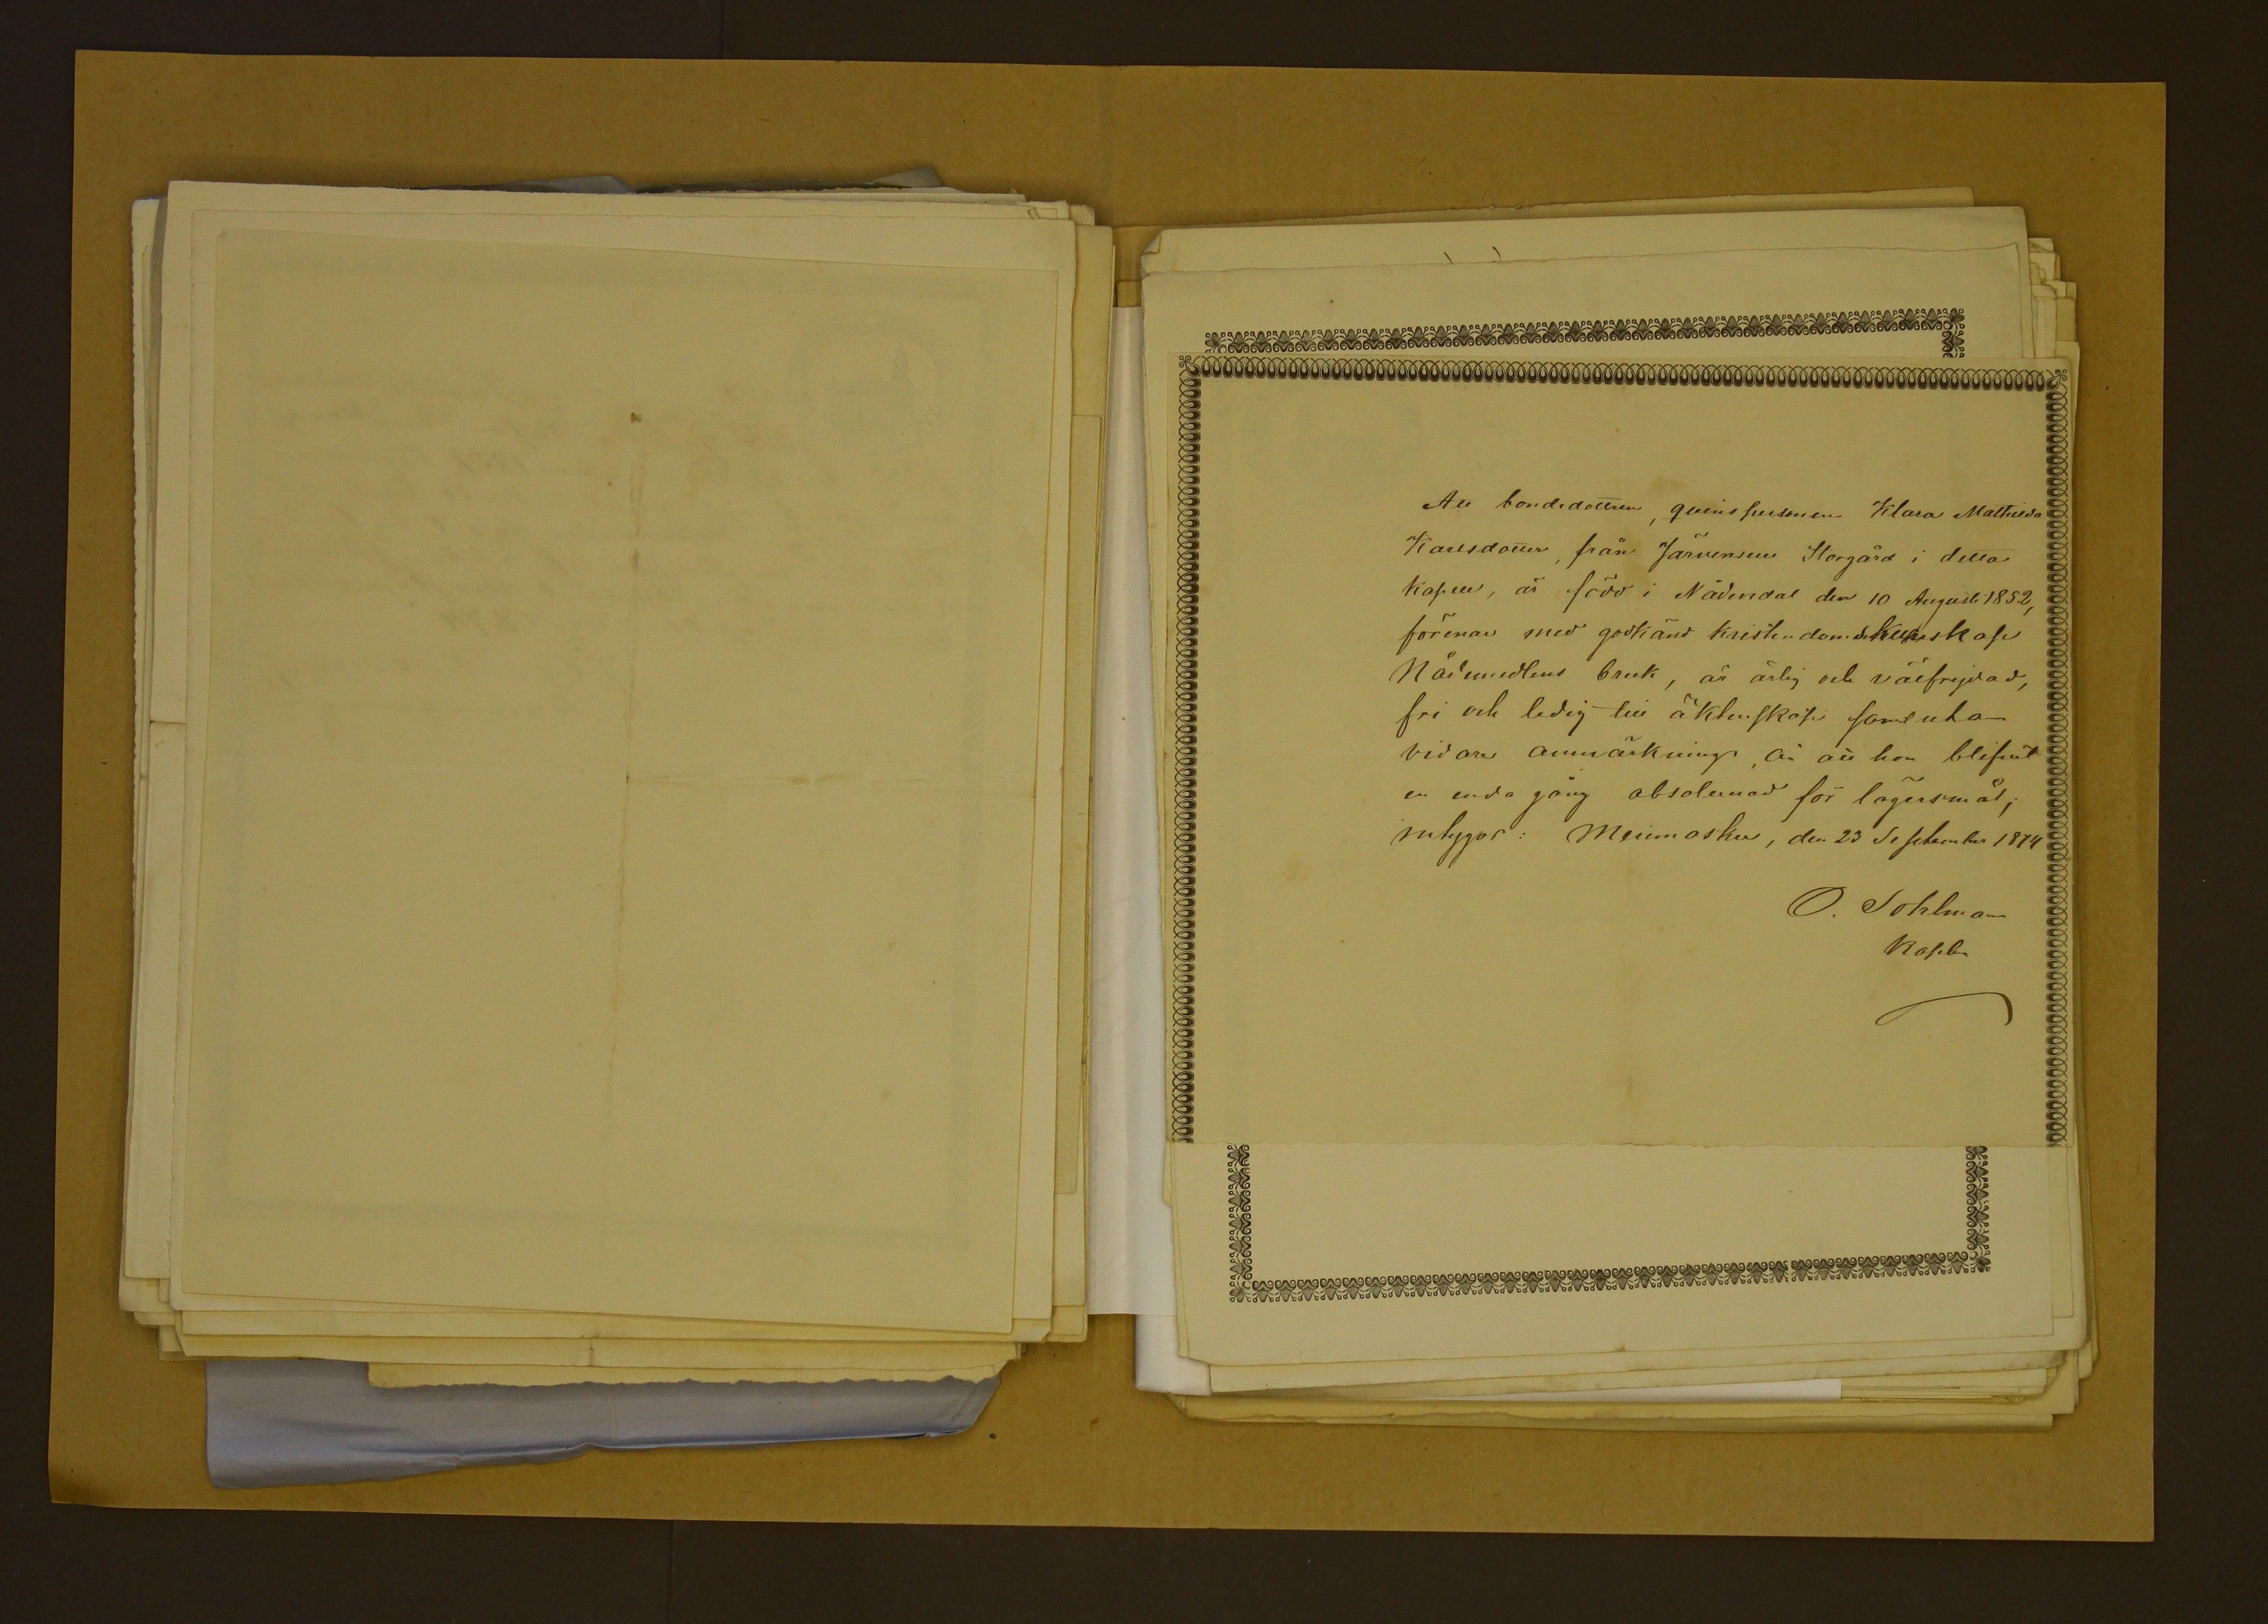 Att bondedottren, qvinspersonen Klara Mathilda
Karlsdotter, från Järvensuu Storgård i detta
kapell, är född i Nådendal den 10 Augusti 1852,
förenar med godkänd kristendomskunskap
Nådemedlens bruk, är ärlig och välfrejdad,
fri och ledig till äktenskap samt utan
vidare anmärkning, än att hon blifvit
en enda gång absolverad för lägersmål;
intygar: Merimasku, den 23 September 1874
O. Sohlman
Kapln